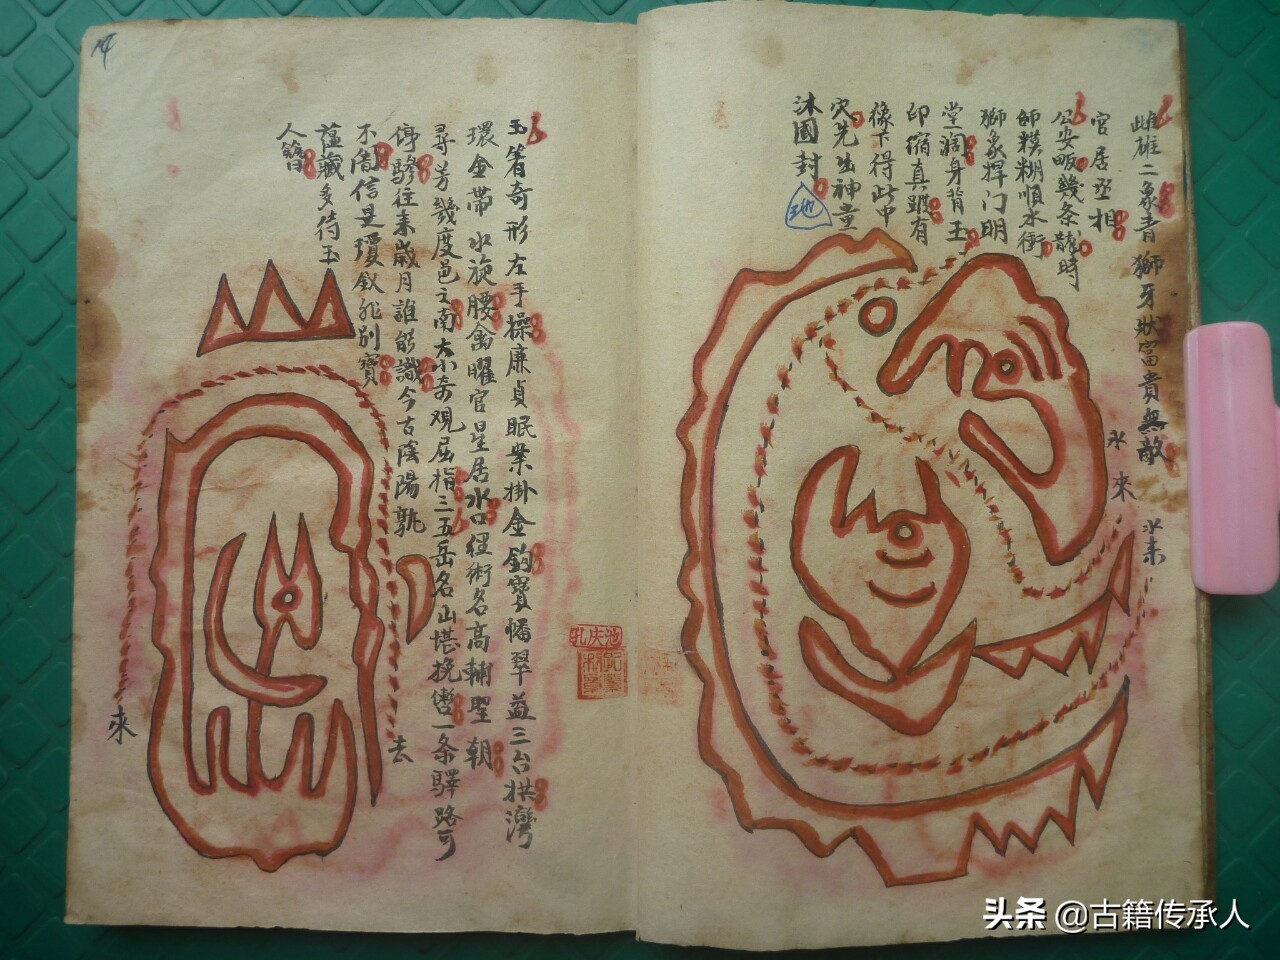 雌雄二象青獅牙狀富貴無敵
官居丞相
公安畈幾条龍時
師模糊順水衝
獅象捍门明
堂濶身背玉
印缩真踱有
像下得此中
穴先出神童
沐國封
地
水來
水来
玉箸奇形左手操廉貞眠業掛金鈎寳幡翠益三台拱灣
環金帶水旋腰禽曜官星居水口徑術名高輔聖朝
尋芳幾度邑之南大小奇观屈指三五岳名山堪挽轡一条驛路可
停驂往来歲月誰能識今古陰陽孰
不闇信是瓊釵非別寳
蕴藏多待玉
人簪
來
去
池庆孔
头条 @古籍传承人